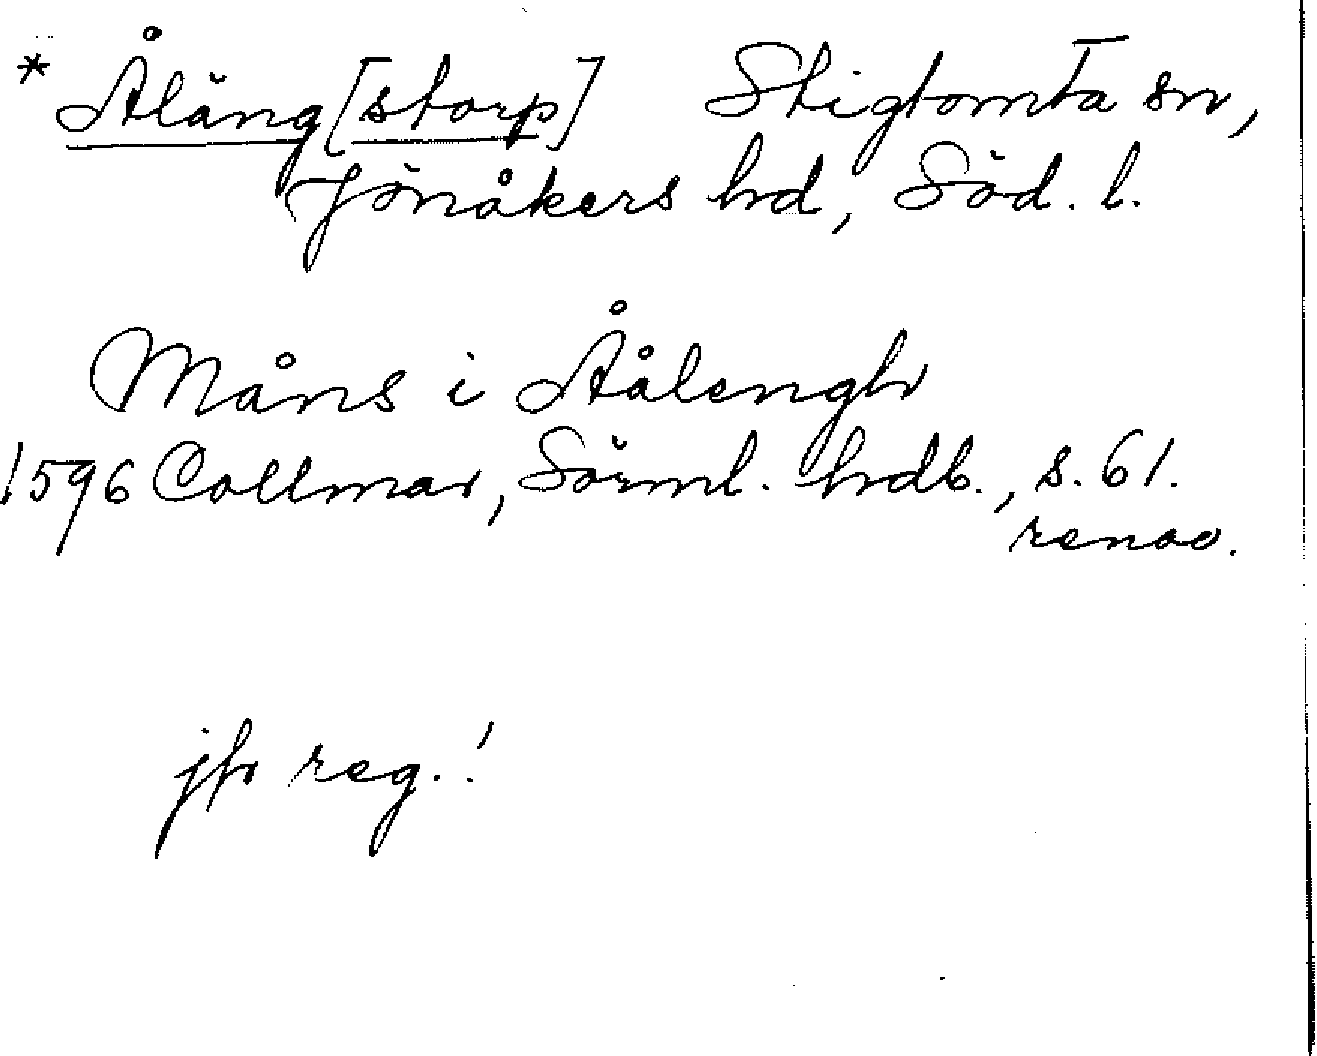 * Åläng[storp] Stigtomta sn,
Jönåkers hd, Söd. l.
Måns i Åålengh
1596 Collmar, Sörml. hdb., s. 61.
renov.
jfr reg.!